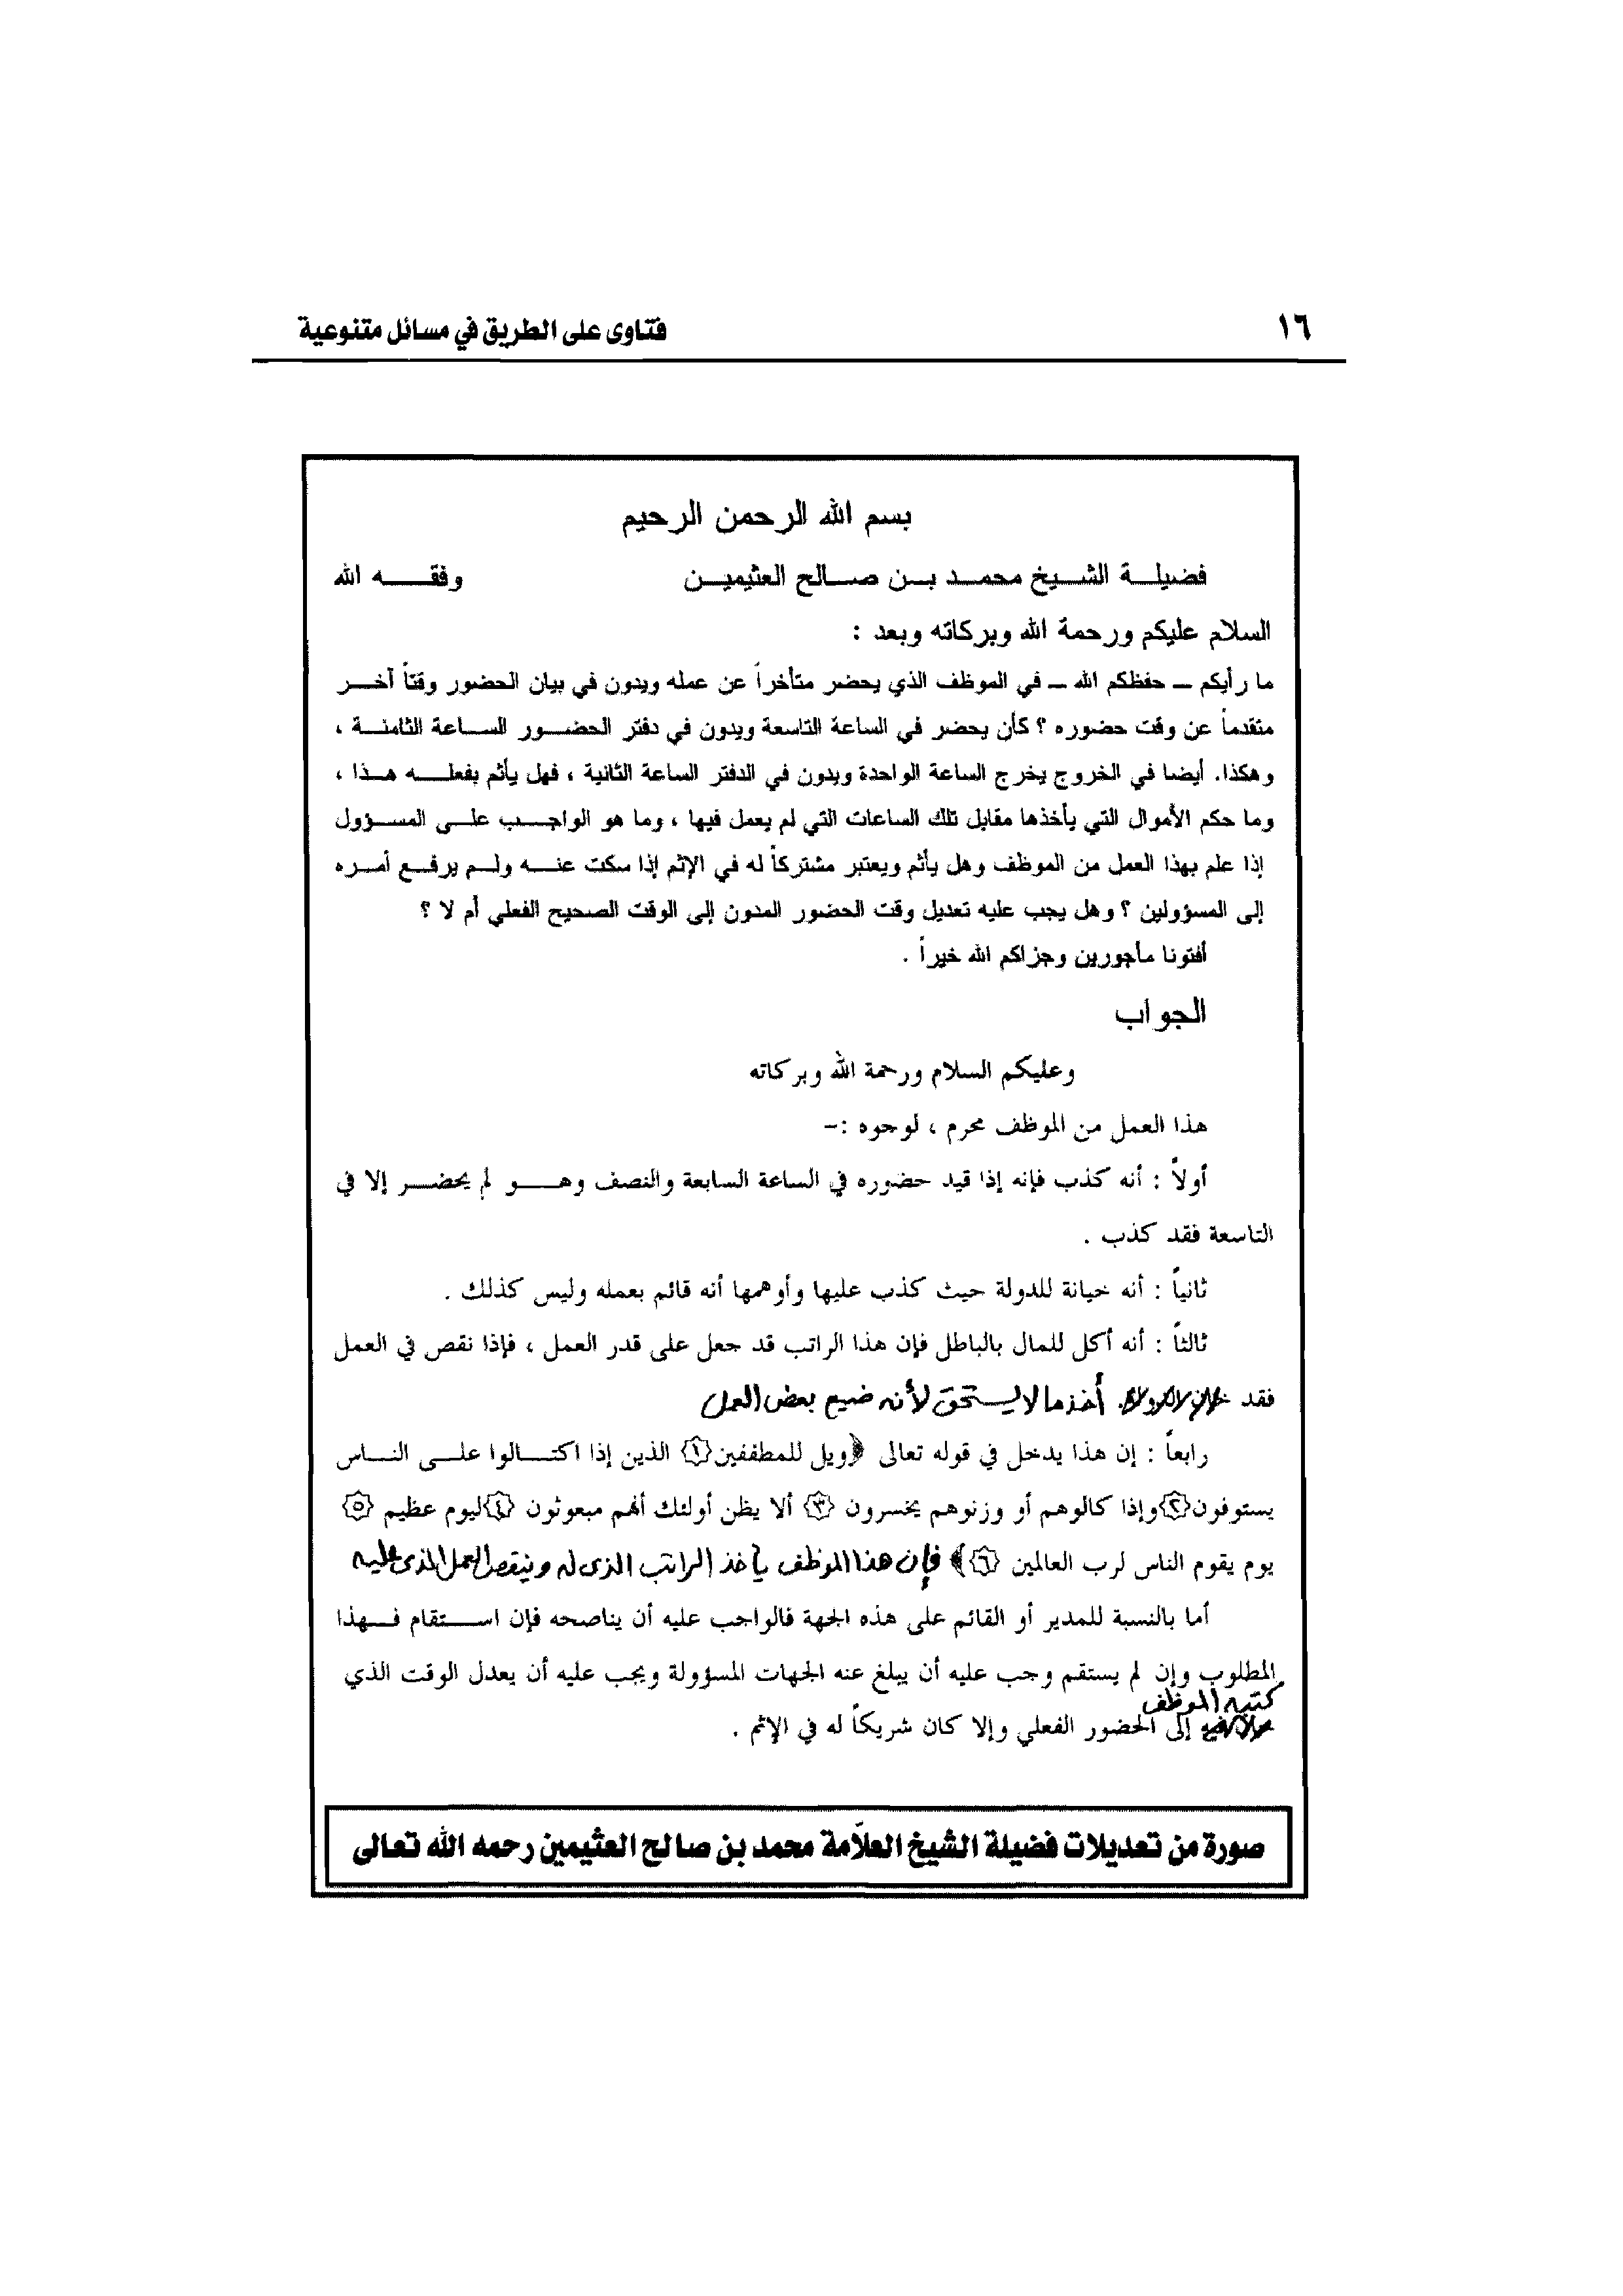 ١٦
فتاوى على الطريق في مسائل متنوعية
بسم الله الرحمن الرحيم
فضيلة الشيخ محمد بن صالح العثيمين وفقه الله
السلام عليكم ورحمة الله وبركاته وبعد :
ما رأيكم – حفظكم الله – في الموظف الذي يحضر متأخراً عن عمله ويدون في بيان الحضور وقتاً آخر
متقدماً عن وقت حضوره ؟ كأن يحضر في الساعة التاسعة ويدون في دفتر الحضور الساعة الثامنة ،
وهكذا. أيضا في الخروج يخرج الساعة الواحدة ويدون في الدفتر الساعة الثانية ، فهل يأثم بفعله هذا ،
وما حكم الأموال التي يأخذها مقابل تلك الساعات التي لم يعمل فيها ، وما هو الواجب على المسؤول
إذا علم بهذا العمل من الموظف وهل يأثم ويعتبر مشتركاً له في الإثم إذا سكت عنه ولم يرفع أمره
إلى المسؤولين ؟ وهل يجب عليه تعديل وقت الحضور المدون إلى الوقت الصحيح الفعلي أم لا ؟
أفتونا مأجورين وجزاكم الله خيراً .
الجواب
وعليكم السلام ورحمة الله وبركاته
هذا العمل من الموظف محرم ، لوجوه :-
أولاً : أنه كذب فإنه إذا قيد حضوره في الساعة السابعة والنصف وهو لم يحضر إلا في
التاسعة فقد كذب .
ثانياً : أنه خيانة للدولة حيث كذب عليها وأوهمها أنه قائم بعمله وليس كذلك .
ثالثاً : أنه أكل للمال بالباطل فإن هذا الراتب قد جعل على قدر العمل ، فإذا نقص في العمل
فقد أخذ ما لا يستحق لأنه ضيع بعض العمل
رابعاً : إن هذا يدخل في قوله تعالى ﴿ويل للمطففين ١ الذين إذا اكتالوا على الناس
يستوفون ٢ وإذا كالوهم أو وزنوهم يخسرون ٣ ألا يظن أولئك أنهم مبعوثون ٤ ليوم عظيم ٥
يوم يقوم الناس لرب العالمين ٦﴾ فإن هذا الموظف يأخذ الراتب الذي له وينقص العمل الذي عليه
أما بالنسبة للمدير أو القائم على هذه الجهة فالواجب عليه أن يناصحه فإن استقام فهذا
المطلوب وإن لم يستقم وجب عليه أن يبلغ عنه الجهات المسؤولة ويجب عليه أن يعدل الوقت الذي
كتبه الموظف
إلى الحضور الفعلي وإلا كان شريكاً له في الإثم .
صورة من تعديلات فضيلة الشيخ العلاّمة محمد بن صالح العثيمين رحمه الله تعالى